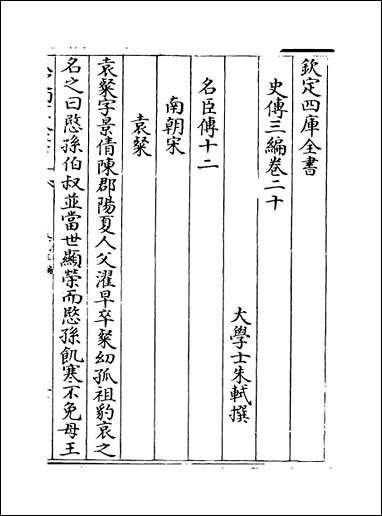 欽定四庫全書
史傳三編卷二十
大學士朱軾撰
名臣傳十二
南朝宋
袁粲
袁粲字景倩陳郡陽夏人父濯早卒粲幼孤祖豹哀之
名之曰愍孫伯叔並當世顯榮而愍孫飢寒不免母王